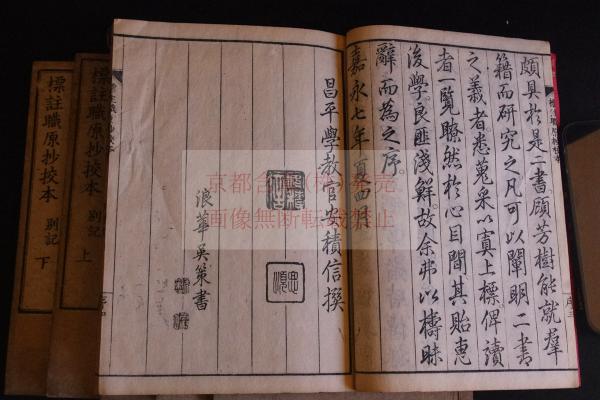 頗具於是二書顧芳樹能就羣
籍而研究之凡可以闡明二書
之義者悉蒐采以寘上標俾讀
者一覽瞭然於心目間其貽惠
後學良匪淺鮮故余弗以檮昧
辭而為之序
嘉永七年夏四月
昌平學教官安積信撰
浪華吳策書
標註職原抄挍本 別記 上
標註職原抄挍本 別記 下
画像無断転載禁止